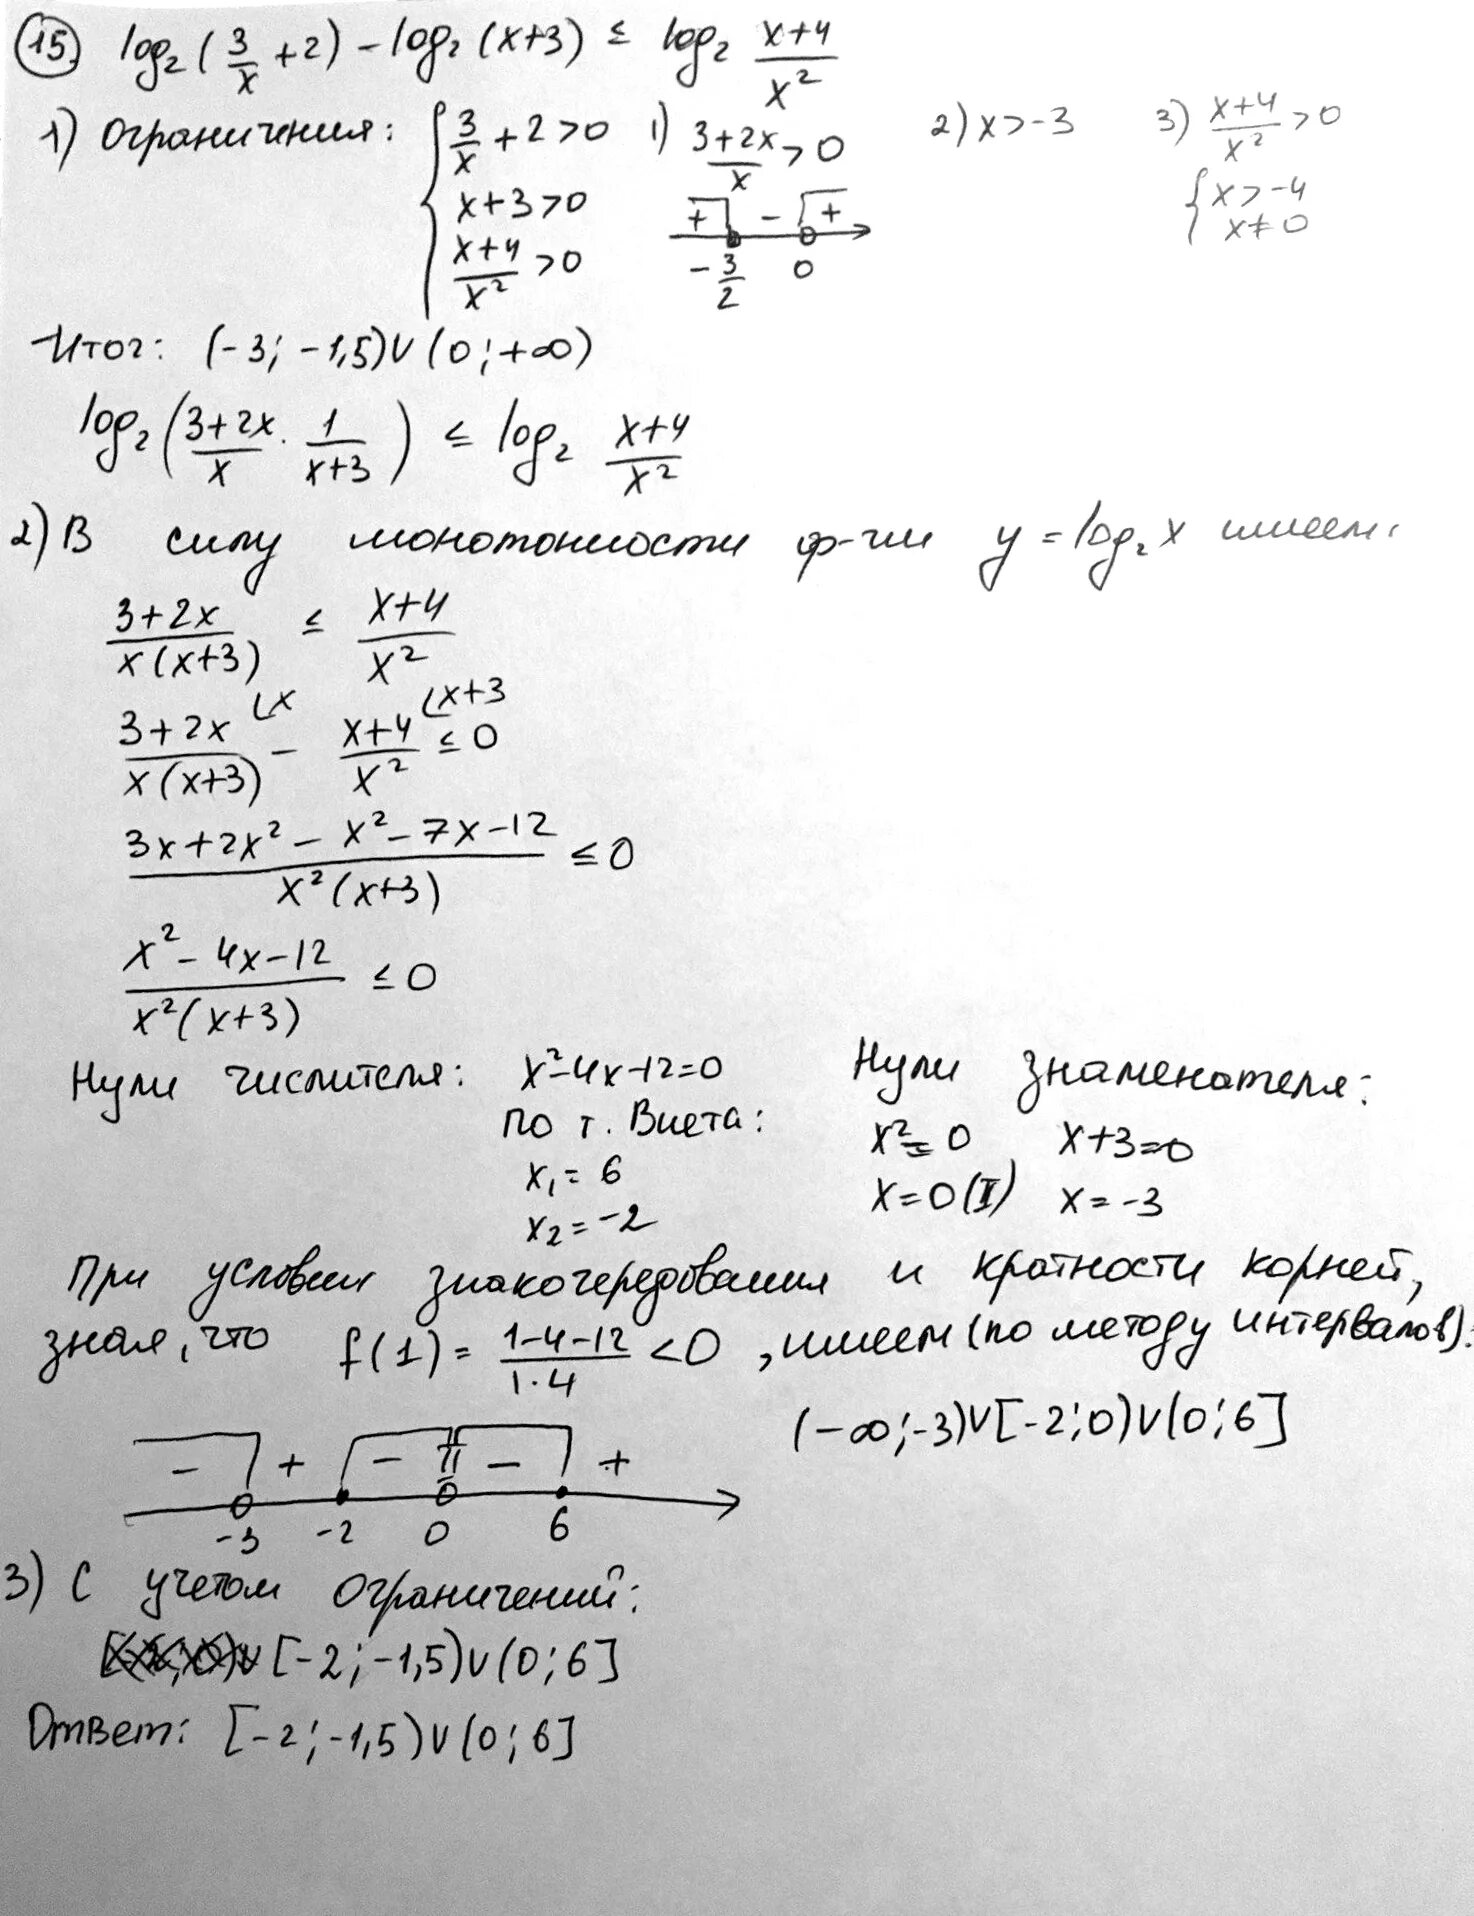 15) log₂(3/x + 2) - log₂(x+3) ≤ log₂ (x+4)/x²
1) Ограничения: { 3/x + 2 > 0
x+3 > 0
(x+4)/x² > 0
1) (3+2x)/x > 0
+ - +
-3/2 0
2) x > -3
3) (x+4)/x² > 0
{ x > -4
x ≠ 0
Итог: (-3; -1,5)∪(0; +∞)
log₂((3+2x)/x · 1/(x+3)) ≤ log₂ (x+4)/x²
2) В силу монотонности ф-ции y = log₂x имеем:
(3+2x)/(x(x+3)) ≤ (x+4)/x²
(3+2x)/(x(x+3)) (x - (x+4)/x² (x+3 ≤ 0
(3x+2x² - x² - 7x - 12)/(x²(x+3)) ≤ 0
(x² - 4x - 12)/(x²(x+3)) ≤ 0
Нули числителя: x² - 4x - 12 = 0
по т. Виета:
x₁ = 6
x₂ = -2
Нули знаменателя:
x² = 0 x+3 = 0
x = 0 (II) x = -3
При условии знакочередования и кратности корней,
зная, что f(1) = (1-4-12)/(1·4) < 0, имеем (по методу интервалов):
(-∞; -3)∪[-2; 0)∪(0; 6]
- + - II - +
-3 -2 0 6
3) С учетом ограничений:
[-2; -1,5)∪(0; 6]
Ответ: [-2; -1,5)∪(0; 6]